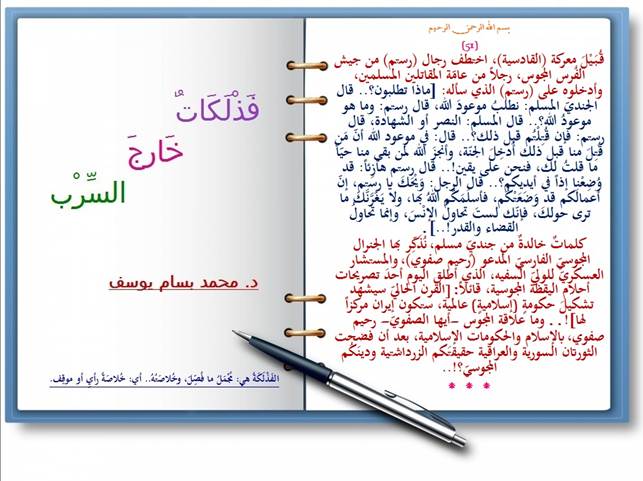 بسم الله الرحمن الرحيم
(51)
قُبَيْلَ معركة (القادسية)، اختطف رجال (رستم) من جيش
الفُرس المجوس، رجلاً من عامّة المقاتلين المسلمين،
وأدخلوه على (رستم) الذي سأله: [ماذا تطلبون؟.. قال
الجنديّ المسلم: نطلبُ موعودَ الله، قال رستم: وما هو
موعودُ الله؟.. قال المسلم: النصر أو الشهادة، قال
رستم: فإن قُتِلْتُم قبل ذلك؟.. قال: في موعود الله أنّ مَن
قُتِلَ منا قبل ذلك أُدخِلَ الجنّة، وأنجَزَ الله لمن بقي منا حيّاً
ما قلتُ لك، فنحن على يقين!.. قال رستم هازئاً: قد
وُضِعْنا إذاً في أيديكم؟.. قال الرجل: وَيْحَكَ يا رستم، إنّ
أعمالكم قد وضَعَتْكُم، فأسلَمَكُم اللهُ بها، ولا يَغُرَّنَّكَ ما
ترى حولك، فإنك لستَ تحاولُ الإنْسَ، وإنما تحاول
القضاء والقدر!..].
كلماتٌ خالدةٌ من جنديّ مسلم، نُذَكِّر بها الجنرال
المجوسيّ الفارسيّ المدعو (رحيم صفوي)، والمستشار
العسكريّ للوليّ السفيه، الذي أطلق اليوم أحدَ تصريحات
أحلام اليقظة المجوسية، قائلاً: [القرن الحاليّ سيشهد
تشكيل حكومةٍ (إسلاميةٍ) عالمية، ستكون إيران مركزاً
لها]!.. وما علاقة المجوس -أيها الصفَويّ- رحيم
صفوي، بالإسلام والحكومات الإسلامية، بعد أن فضحت
الثورتان السورية والعراقية حقيقتَكم الزرداشتية ودينَكُم
المجوسيّ؟!..
* * *
فَذْلَكَاتٌ
خَارِجَ
السِّرْب
د. محمد بسام يوسف
الفَذْلَكَةُ هي: مُجْمَلُ ما فُصِّلَ، وخُلاصَتُهُ.. أي: خُلاصَةُ رأيٍ أو موقِف.